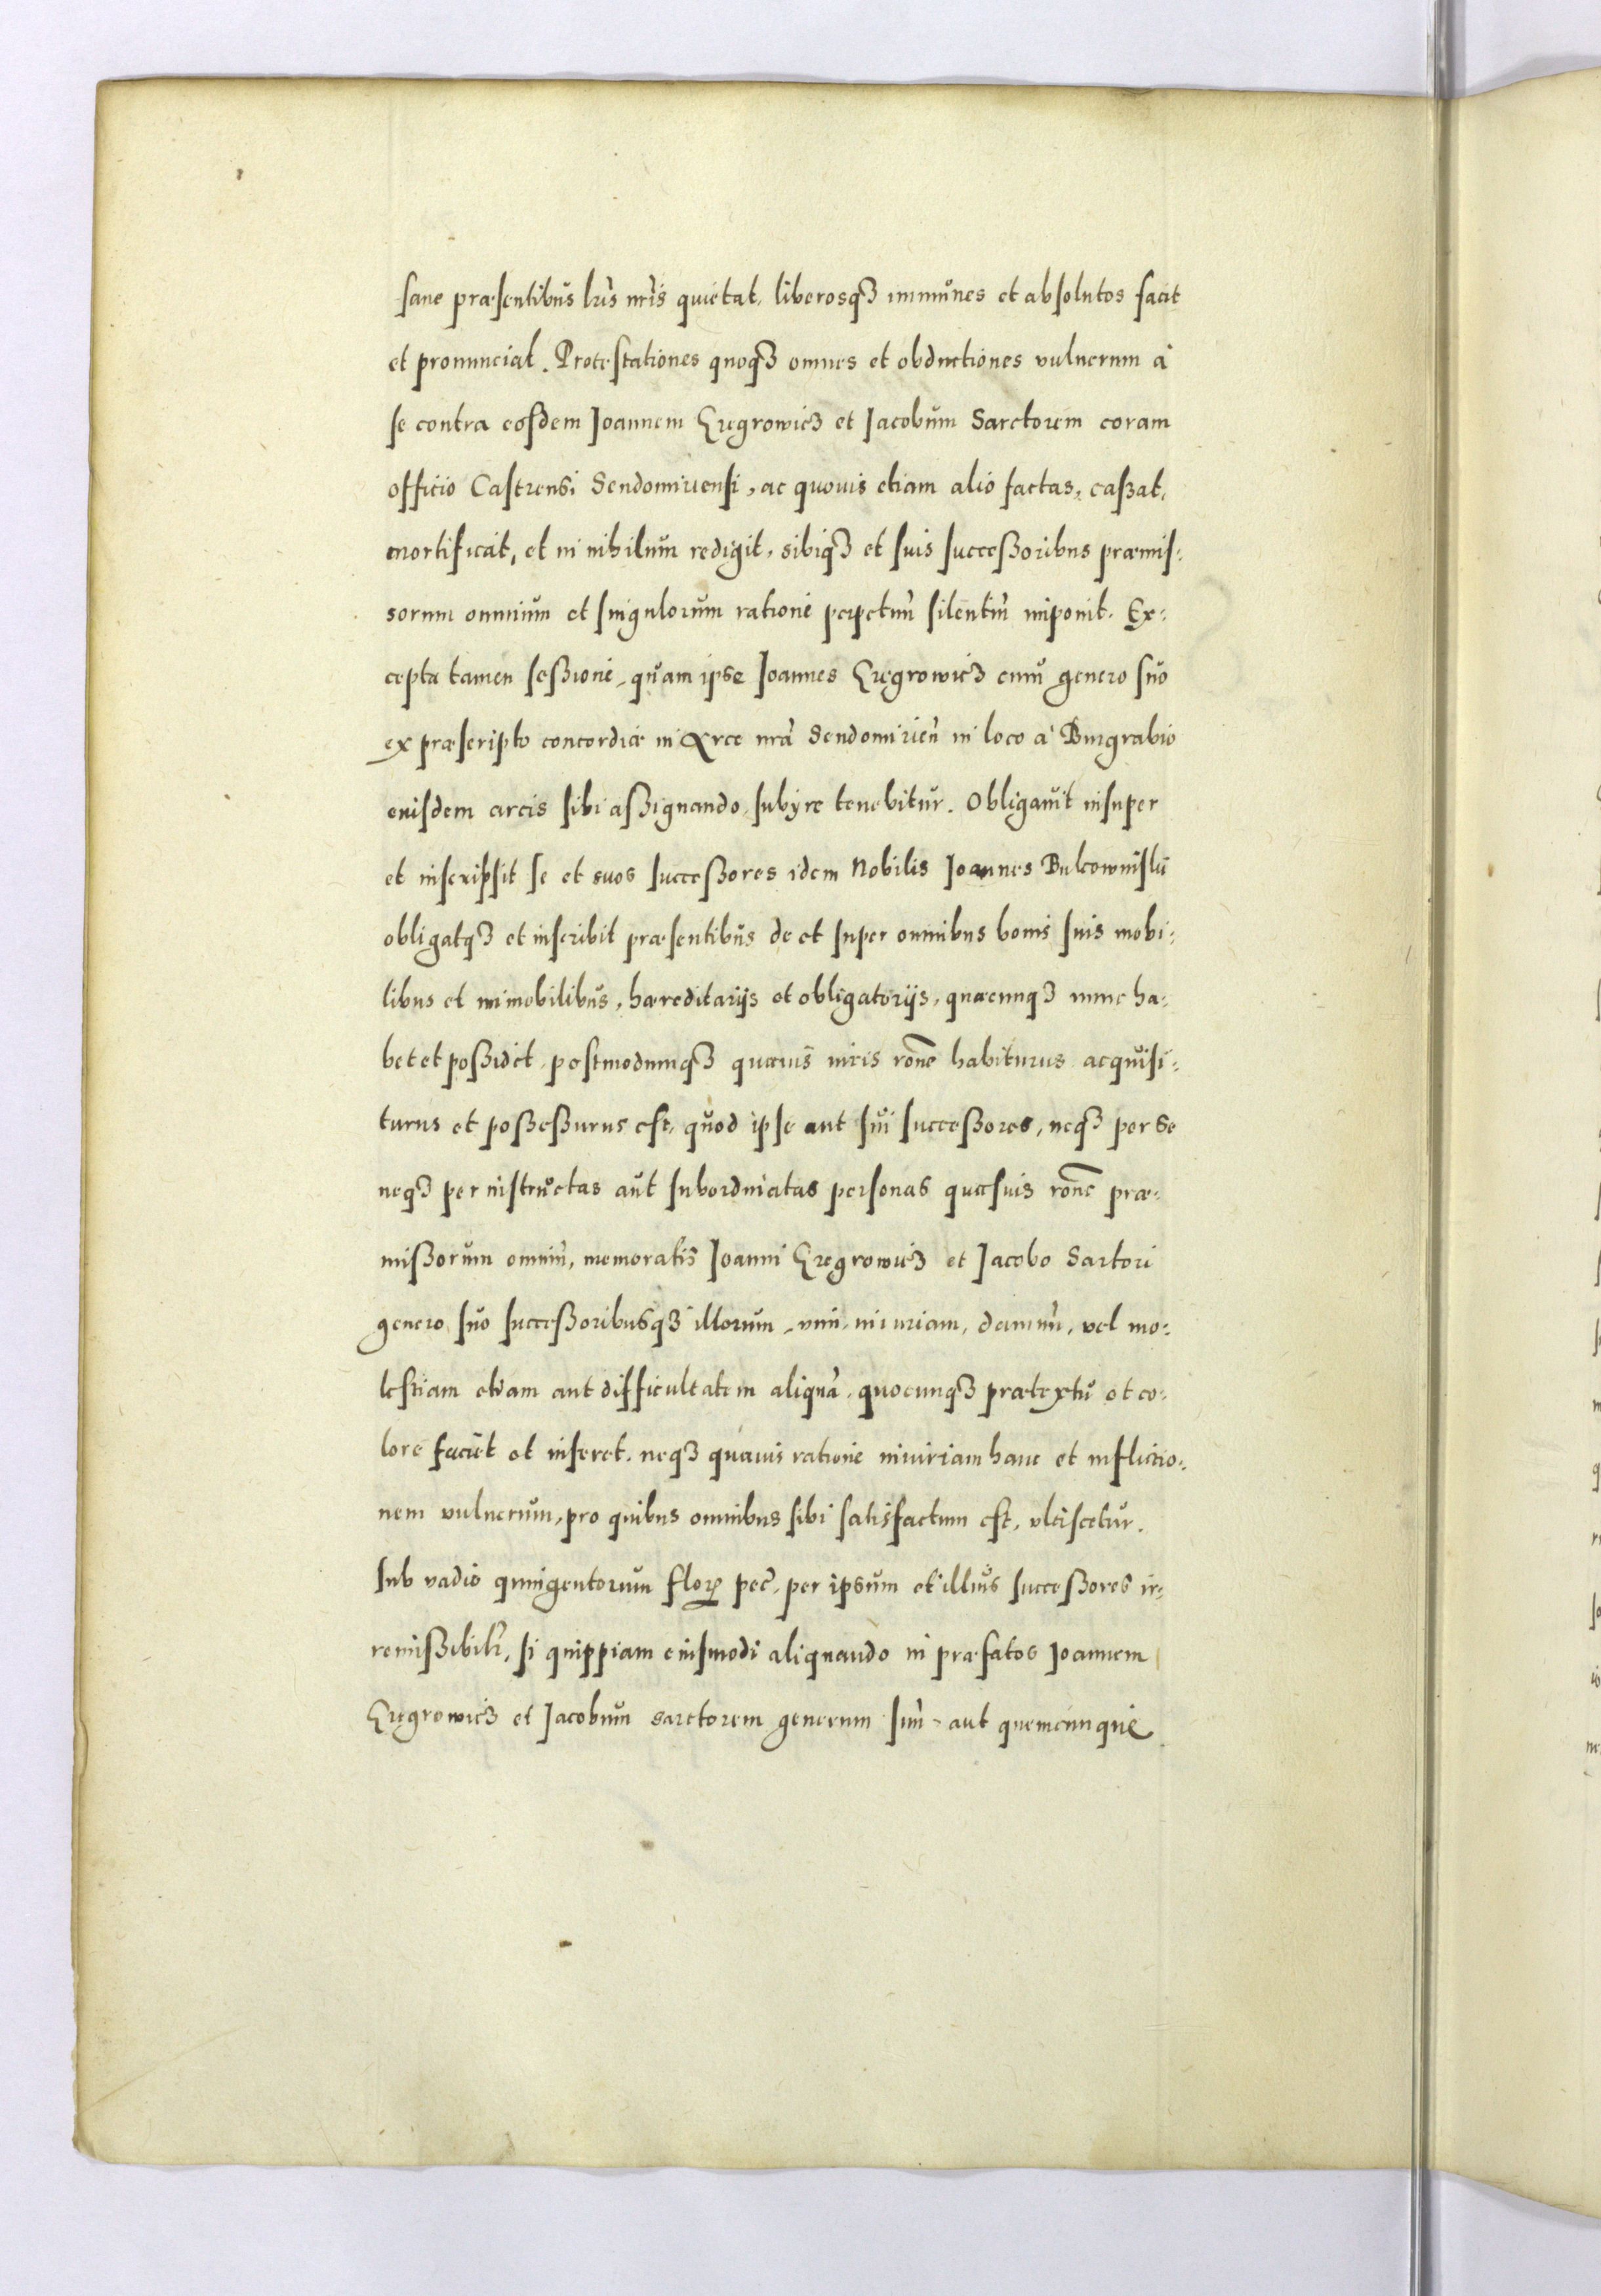 sane præsentibus lr̃is nr̃is quietat, liberosqʒ immunes et absolutos facit
et pronunciat. Protestationes quoqʒ omnes et obductiones vulnerum à
se contra eosdem Joannem Gręgrowicz et Jacobum Sarctorem coram
officio Castrensi Sendomiriensi, ac quouis etiam alio factas, caßat,
mortificat, et in nihilum redigit, sibiqʒ et suis succeßoribus præmis:
sorum omnium et singulorum ratione perpetuũ silentiũ imponit. Ex:
cepta tamen seßione, quam ipse Joannes Gręgrowicz cum genero suo
ex præscripto concordiæ in Arce nr̃a Sendomirien̄ in loco à Burgrabio
eiusdem arcis sibi aßignando, subyre tenebitur. Obligauit insuper
et inscripsit se et suos succeßores idem Nobilis Joannes
obligatqʒ et inscribit præsentibus de et super omnibus bonis suis mobi:
libus et immobilibus, hæreditarijs et obligatorijs, quæcunqʒ nunc ha:
bet et poßidet, postmodumqʒ quauis iuris rõne habiturus acquisi:
turus et poßeßurus est, quod ipse aut sui succeßores, neqʒ per se
neqʒ per instructas aut subordinatas personas quasuis rõne præ:
mißorum omniũ, memoratis Joanni Gręgrowicz et Jacobo Sartori
genero suo succeßoribusqʒ illorum, vim, iniuriam, damnũ, vel mo:
lestiam etiam aut difficultatem aliquã, quocunqʒ prætextu et co:
lore faciet et inferet, neqʒ quauis ratione iniuriam hanc et inflictio:
nem vulnerum, pro quibus omnibus sibi satisfactum est, vlciscetur.
Sub vadio quingentorum floꝝ pec̃, per ipsum et illius succeßores ir:
remißibilr̃, si quippiam eiusmodi aliquando in præfatos Joannem
Gręgrowicz et Jacobum sarctorem generum suũ, aut quemcunque